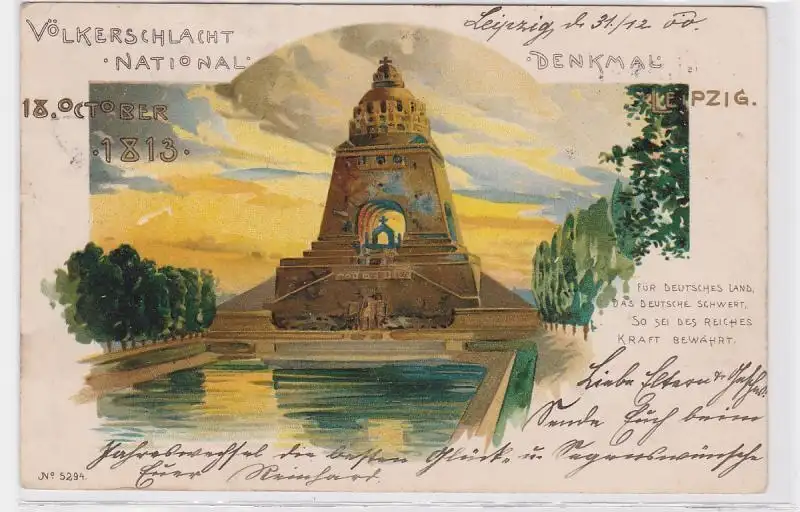 Leipzig, d. 31./12 00.
VÖLKERSCHLACHT
·NATIONAL·
·DENKMAL·
18. OCTOBER
LEIPZIG.
·1813·
FÜR DEUTSCHES LAND,
DAS DEUTSCHE SCHWERT,
SO SEI DES REICHES
KRAFT BEWÄHRT.
Liebe Eltern u.
Sende Euch beim
Jahreswechsel die besten Glück- u. Segenswünsche
Euer Reinhard.
No 5294.